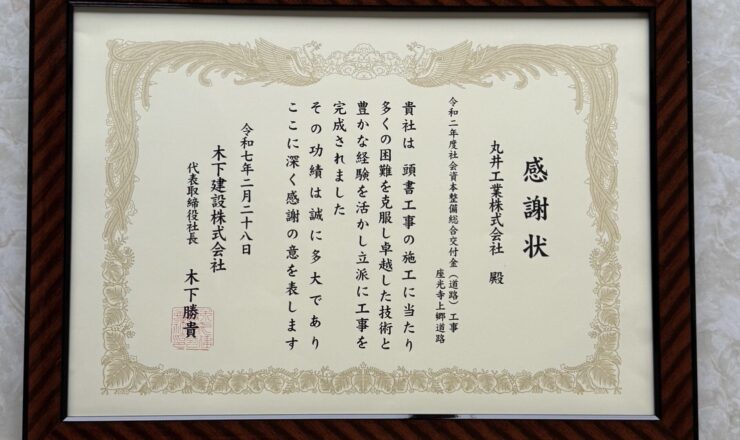 感謝状
丸井工業株式会社 殿
令和二年度社会資本整備総合交付金(道路)工事
座光寺上郷道路
貴社は 頭書工事の施工に当たり
多くの困難を克服し卓越した技術と
豊かな経験を活かし立派に工事を
完成されました
その功績は誠に多大であり
ここに深く感謝の意を表します
令和七年二月二十八日
木下建設株式会社
代表取締役社長 木下勝貴